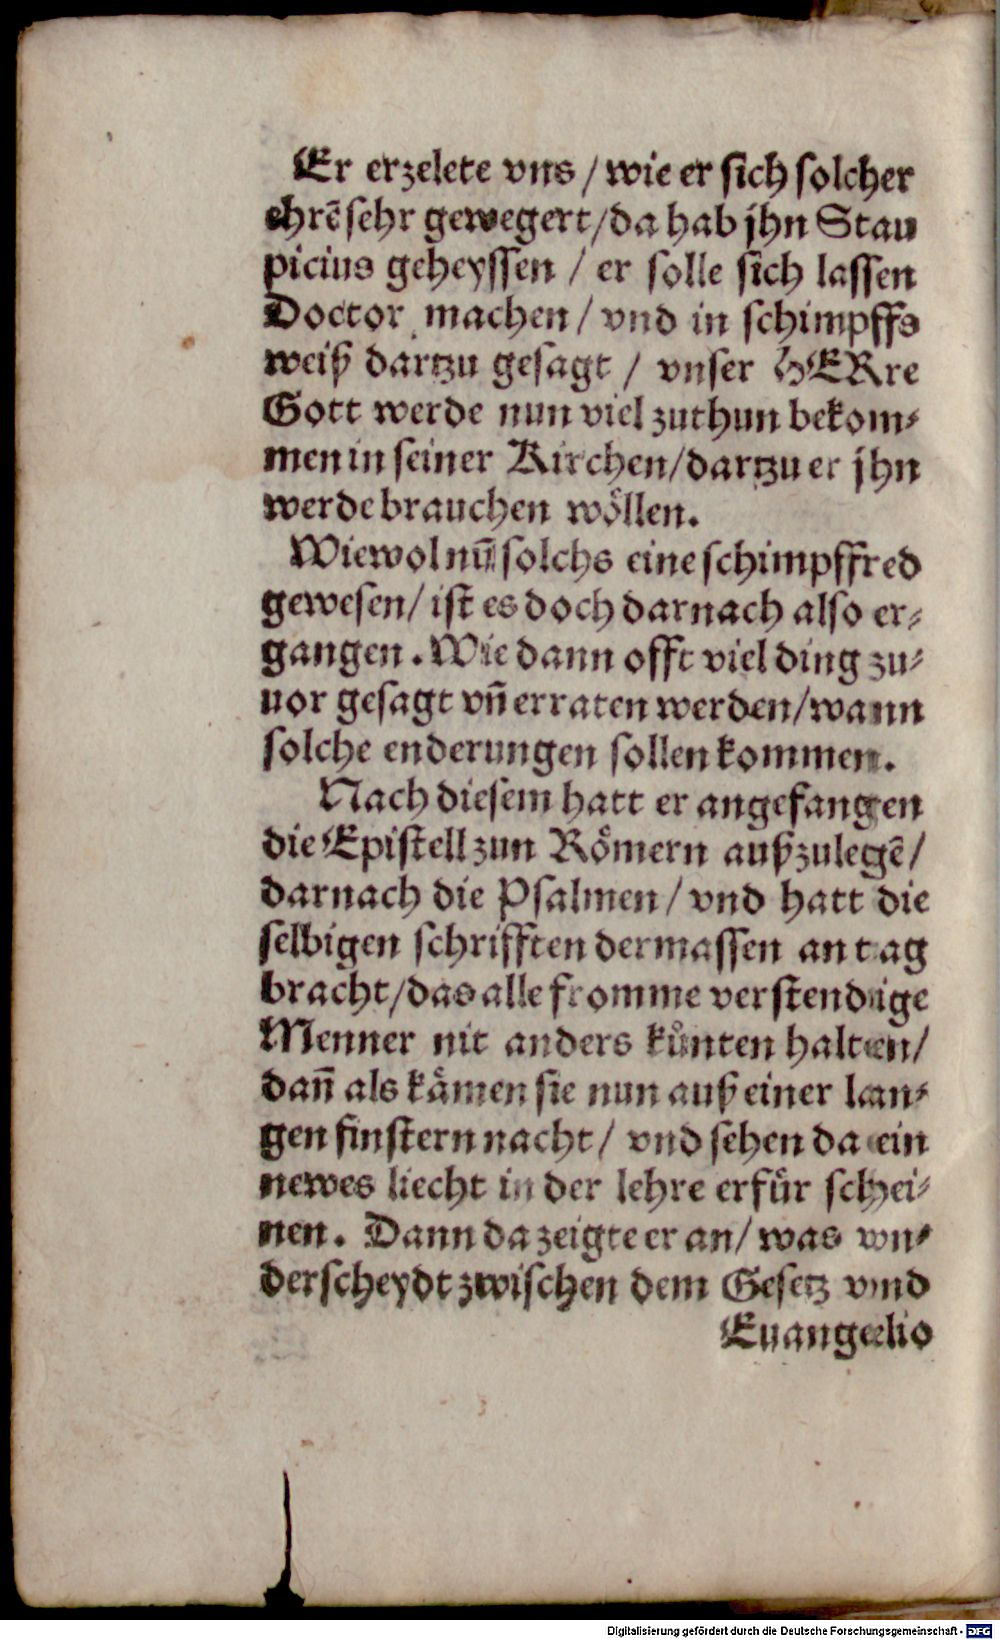 Er erzelete vns / wie er sich solcher
ehrē sehr gewegert / da hab jhn Stau
picius geheyssen / er solle sich lassen
Doctor machen / vnd in schimpffs
weiß dartzu gesagt / vnser HERre
Gott werde nun viel zuthun bekom-
men in seiner Kirchen / dartzu er jhn
werde brauchen wöllen.
Wiewol nū solchs eine schimpffred
gewesen / ist es doch darnach also er-
gangen. Wie dann offt viel ding zu-
uor gesagt vn̄ erraten werden / wann
solche enderungen sollen kommen.
Nach diesem hatt er angefangen
die Epistell zun Römern außzulegē /
darnach die Psalmen / vnd hatt die
selbigen schrifften dermassen an tag
bracht / das alle fromme verstendige
Menner nit anders künten halten /
dan̄ als kämen sie nun auß einer lan-
gen finstern nacht / vnd sehen da ein
newes liecht in der lehre erfür schei-
nen. Dann da zeigte er an / was vn-
derscheydt zwischen dem Gesetz vnd
Euangelio
Digitalisierung gefördert durch die Deutsche Forschungsgemeinschaft - DFG